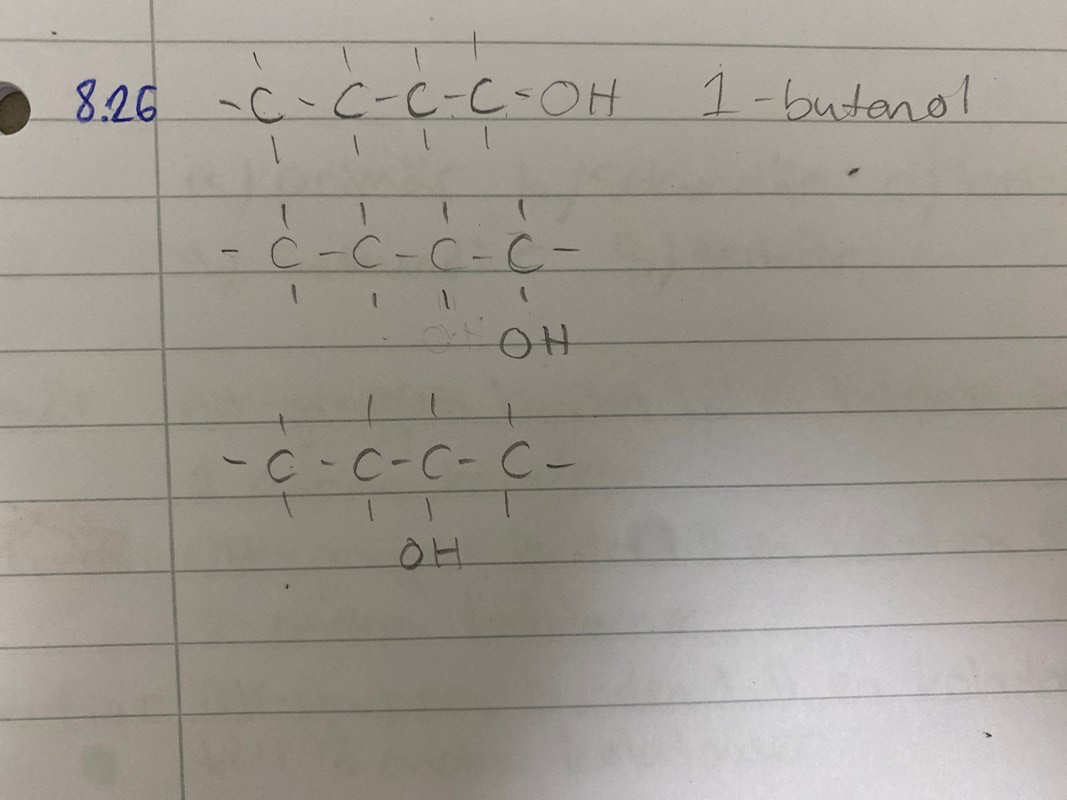 8.26 -C-C-C-C-OH 1-butanol
-C-C-C-C-
OH
-C-C-C-C-
OH